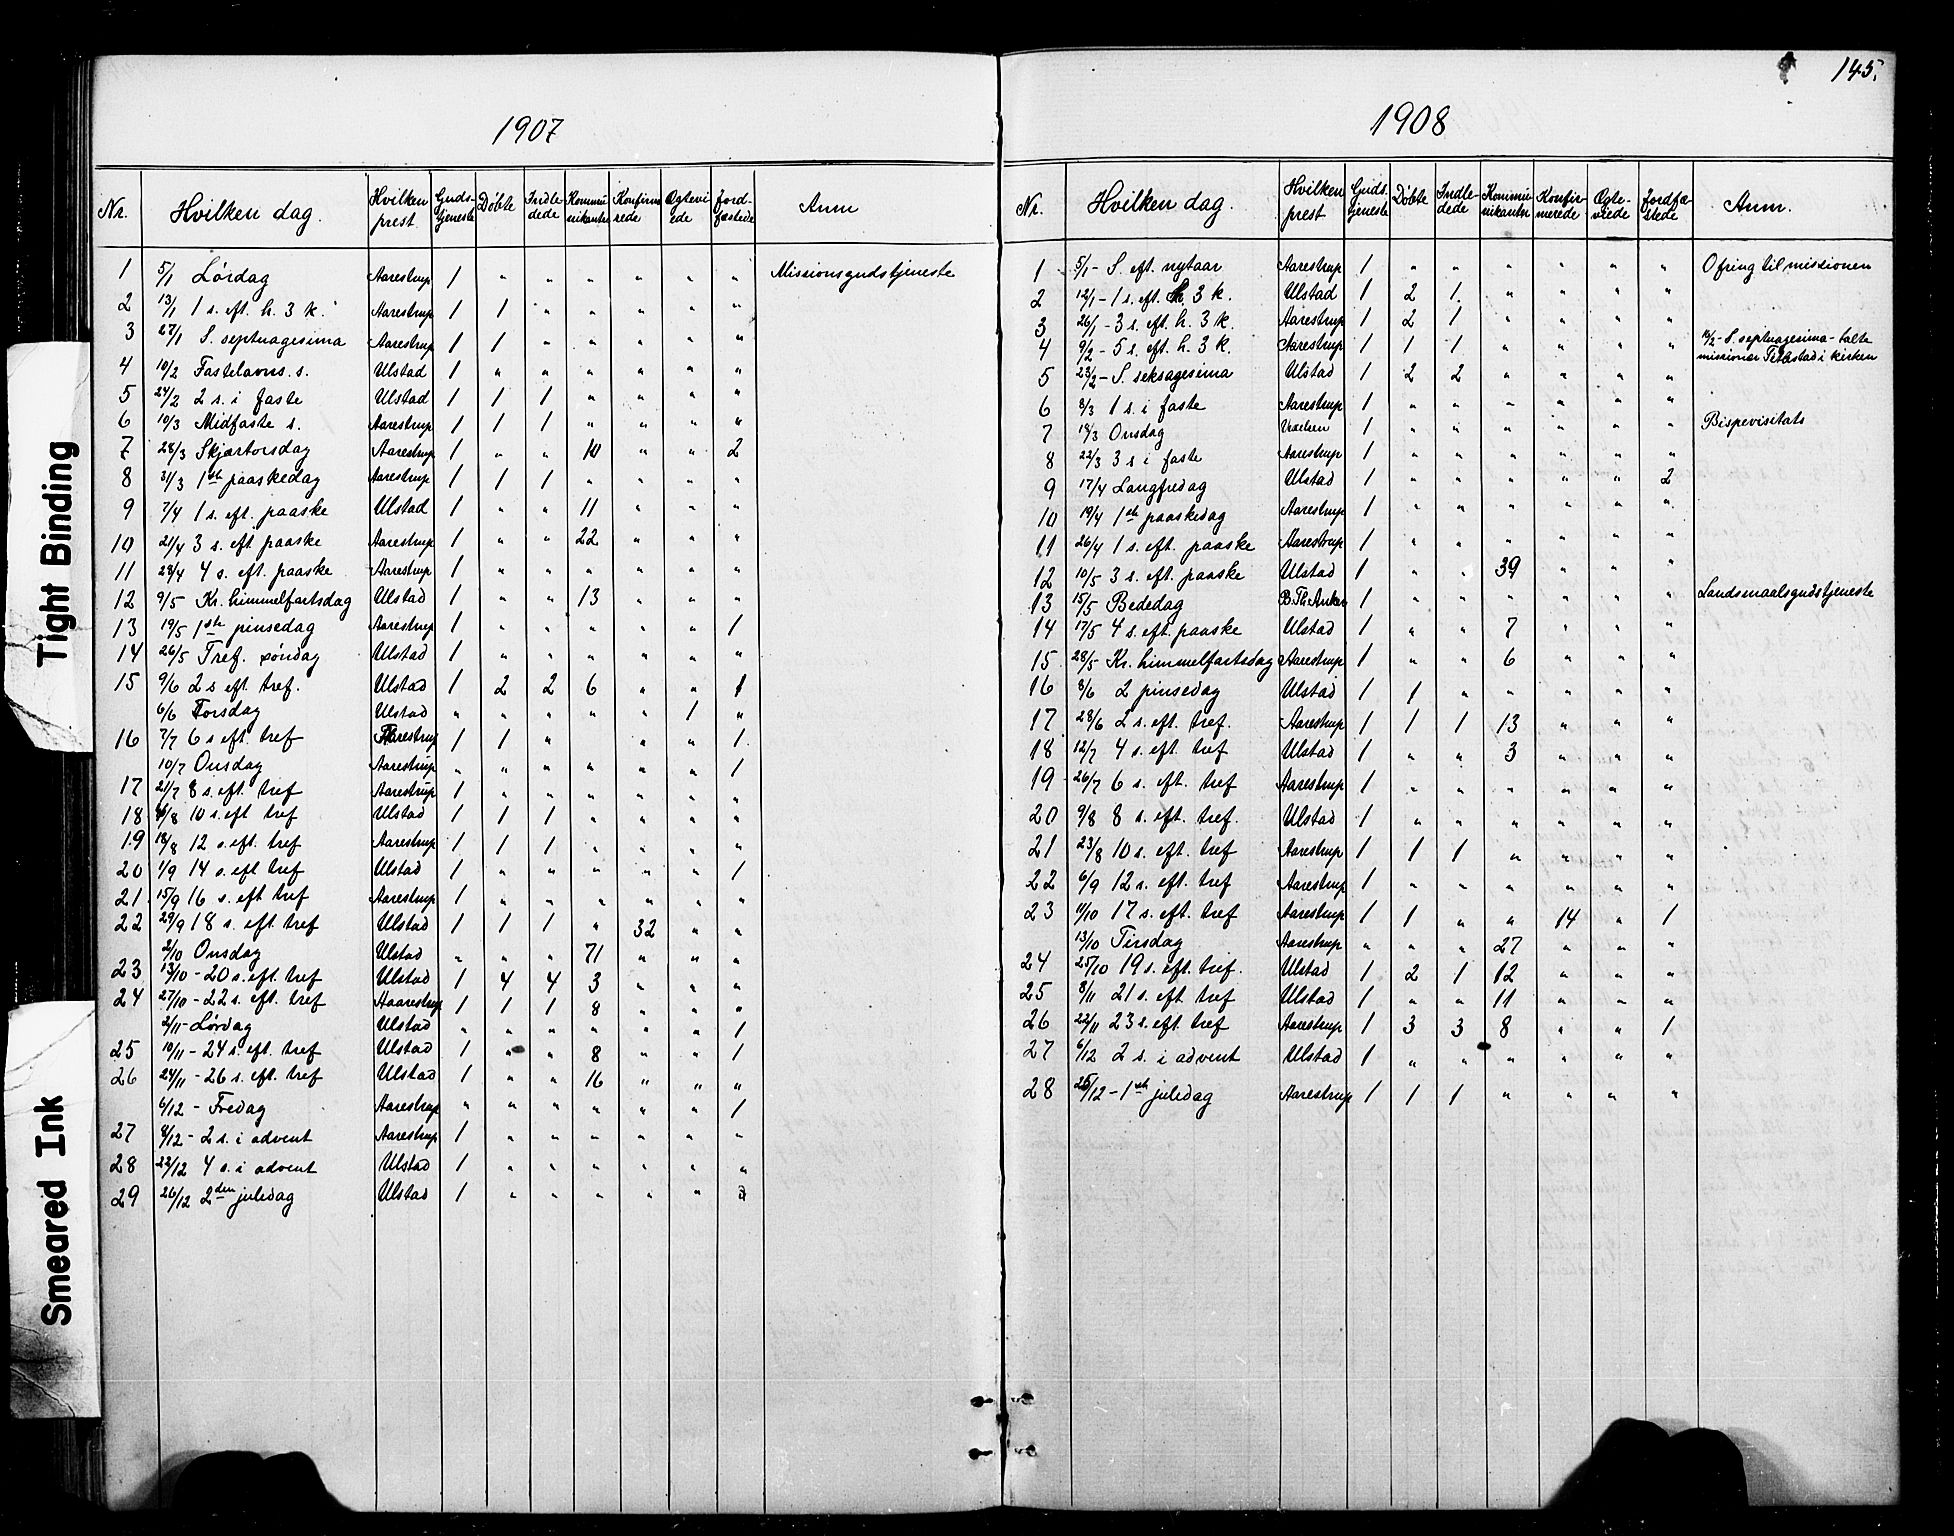 145.
1907
Nr. Hvilken dag. Hvilken prest Guds-tjeneste Döbte Indle-dede Kommu-nikanter Konfirme-rede Ægtevi-ede Jord-fæstede Anm
1 5/1 Lördag Aarestrup 1 " " " " " " Missionsgudstjeneste
2 13/1 1 s. eft. h. 3 k. Aarestrup 1 1 " " " " "
3 27/1 S. septuagesima Aarestrup 1 1 " " " " "
4 10/2 Fastelavns. s. Ulstad 1 " " " " " "
5 24/2 2 s. i faste Ulstad 1 1 1 " " " "
6 10/3 Midfaste s. Aarestrup 1 1 1 " " " "
7 28/3 Skjærtorsdag Aarestrup 1 " " " " 2
8 31/3 1ste paaskedag Aarestrup 1 1 1 " " " "
9 7/4 1 s. eft. paaske Ulstad 1 " " 11 " " "
10 21/4 3 s. eft paaske Aarestrup 1 " " 22 " " "
11 28/4 4 s. eft. paaske Aarestrup 1 " " " " " "
12 9/5 Kr. himmelfartsdag Ulstad 1 " " 13 " " "
13 19/5 1ste pinsedag Aarestrup 1 " " " " " 1
14 26/5 Tref. söndag Ulstad 1 " " " " " "
15 9/6 2 s eft tref. Ulstad 1 2 2 6 " " 1
6/6 Torsdag Ulstad " " " " " 1 "
16 7/7 6 s eft. tref Aarestrup 1 1 " " " " 1
10/7 Onsdag Aarestrup " " " " " " 1
17 21/7 8 s. eft. tref Aarestrup 1 " " " " " "
18 /8 10 s. eft tref Ulstad 1 1 1 " " " "
19 18/8 12 s. eft. tref Aarestrup 1 1 1 " " " "
20 1/9 14 s. eft tref Ulstad 1 " " " " " 1
21 15/9 16 s. eft tref Aarestrup 1 " " " " " "
22 29/9 18 s. eft tref Ulstad 1 1 1 " 32 " "
2/10 Onsdag Ulstad " " " 71 " " "
23 13/10 - 20 s. eft. tref Ulstad 1 4 4 3 " " "
24 27/10 - 22 s. eft. tref Aaarestrup 1 1 1 8 " " "
2/11 - Lördag Ulstad " " " " " " 1
25 10/11 - 24 s. eft. tref Ulstad 1 " " 8 " " 1
26 24/11 - 26 s. eft. tref Ulstad 1 " " 16 " " "
6/12 - Fredag Aarestrup " " " " " " 1
27 8/12 - 2 s. i advent Aarestrup 1 " " " " " "
28 22/12 4 s. i advent Ulstad 1 " " " " " "
29 26/12 2den juledag Ulstad 1 " " " " "
1908
Nr. Hvilken dag. Hvilken prest Guds-tjeneste Döbte Indle-dede Kommu-nikanter Konfir-merede Ægte-viede Jordfæ-stede Anm.
1 5/1 - S. eft. nytaar Aarestrup 1 " " " " " " Ofring til missionen
2 12/1 - 1 s. eft. h. 3 k. Ulstad 1 2 1 " " " "
3 26/1 - 3 s. eft. h. 3 k. Aarestrup 1 2 1 " " " "
4 9/2 - 5 s. eft. h. 3 k. Aarestrup 1 1 1 " " " " 16/2 - S. septuagesima - talte
missionær i kirken
5 23/2 - S. seksagesima Ulstad 1 2 2 " " " "
6 8/3 1 s. i faste Aarestrup 1 " " " " " "
7 18/3 Onsdag 1 " " " " " " Bispevisitats
8 22/3 3 s i faste Aarestrup 1 " " " " " "
9 17/4 Langfredag Ulstad 1 " " " " " 2
10 19/4 1ste paaskedag Aarestrup 1 " " " " " "
11 26/4 1 s. eft. paaske Aarestrup 1 " " " " " "
12 10/5 3 s. eft. paaske Ulstad 1 " " 39 " " "
13 15/5 Bededag B. Th. Anker 1 " " " " " " Landsmaalsgudstjeneste
14 17/5 4 s. eft. paaske Ulstad 1 " " 7 " " "
15 28/5 Kr. himmelfartsdag Aarestrup 1 " " 6 " " "
16 8/6 2 pinsedag Ulstad 1 1 " " " " "
17 28/6 2 s. eft. tref. Aarestrup 1 1 1 13 " " "
18 12/7 4 s. eft. tref Ulstad 1 " " 3 " " "
19 26/7 6 s. eft. tref Aarestrup 1 " " " " " "
20 9/8 8 s. eft. tref. Ulstad 1 " " " " " "
21 23/8 10 s. eft. tref Aarestrup 1 1 1 " " " "
22 6/9 12 s. eft. tref Aarestrup 1 " " " " " "
23 11/10 17 s. eft. tref Aarestrup 1 1 " " 14 " 1
13/10 Tirsdag Aarestrup " " " 27 " " "
24 25/10 19 s. eft. tref. Ulstad 1 2 1 12 " " "
25 8/11 21 s. eft tref Ulstad 1 " " 11 " " "
26 22/11 23 s. eft. tref Aarestrup 1 3 3 8 " " 1
27 6/12 2 s. i advent Ulstad 1 " " " " " "
28 25/12 - 1ste juledag Aarestrup 1 1 1 " " " "
Tight Binding
Smeared Ink